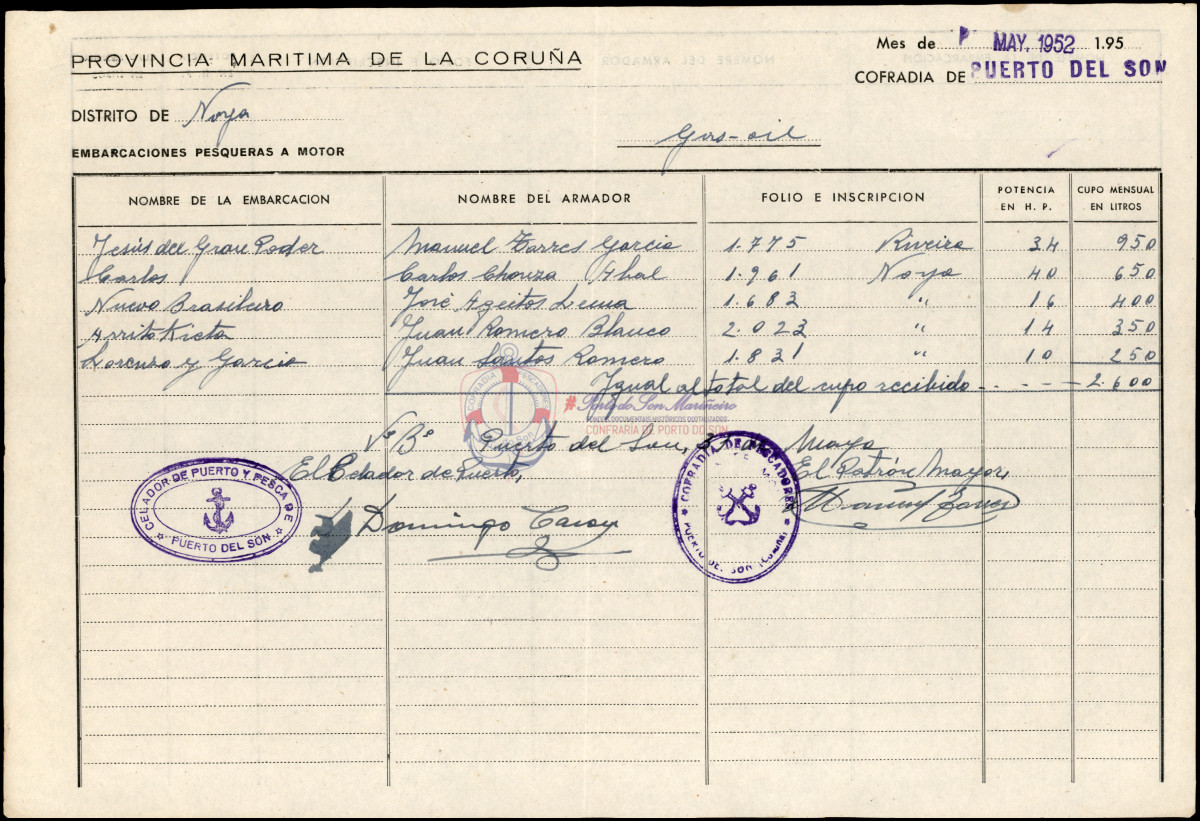 Mes de MAY. 1952 1.95
PROVINCIA MARITIMA DE LA CORUÑA
COFRADIA DE PUERTO DEL SON
DISTRITO DE Noya
Gas-oil
EMBARCACIONES PESQUERAS A MOTOR
NOMBRE DE LA EMBARCACION NOMBRE DEL ARMADOR FOLIO E INSCRIPCION POTENCIA EN H. P. CUPO MENSUAL EN LITROS
Jesús del Gran Poder Manuel Torres Garcia 1.775 Riveira 34 950
Carlos Carlos Chouza 1.961 Noya 40 650
Nuevo Brasileiro José Ageitos Lema 1.683 " 16 400
Juan Romero Blanco 2.023 " 14 350
Lorenzo y Garcia Juan Santos Romero 1.831 " 10 250
Igual al total del cupo recibido - - - - - 2.600
COFRADIA PESCADORES
#Porto do Son Mariñeiro
FONDOS DOCUMENTAIS HISTÓRICOS DIXITALIZADOS
CONFRARIA DE PORTO DO SON
Vº Bº Puerto del Son, Mayo
El Celador de Puerto, El Patrón Mayor,
CELADOR DE PUERTO Y PESCA DE
PUERTO DEL SON
Domingo
Manuel Torres
COFRADIA DE PESCADORES
PUERTO DEL SON (CORUÑA)